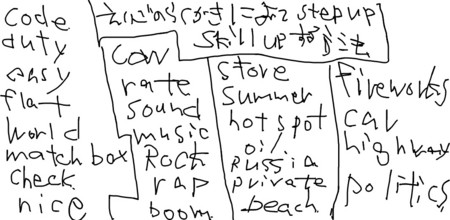 step up
skill up
code
duty
easy
flat
world
match box
check
nice
cow
rate
sound
music
Rock
rap
boom
store
summer
hot spot
oil
Russia
private
beach
Fireworks
car
highway
politics